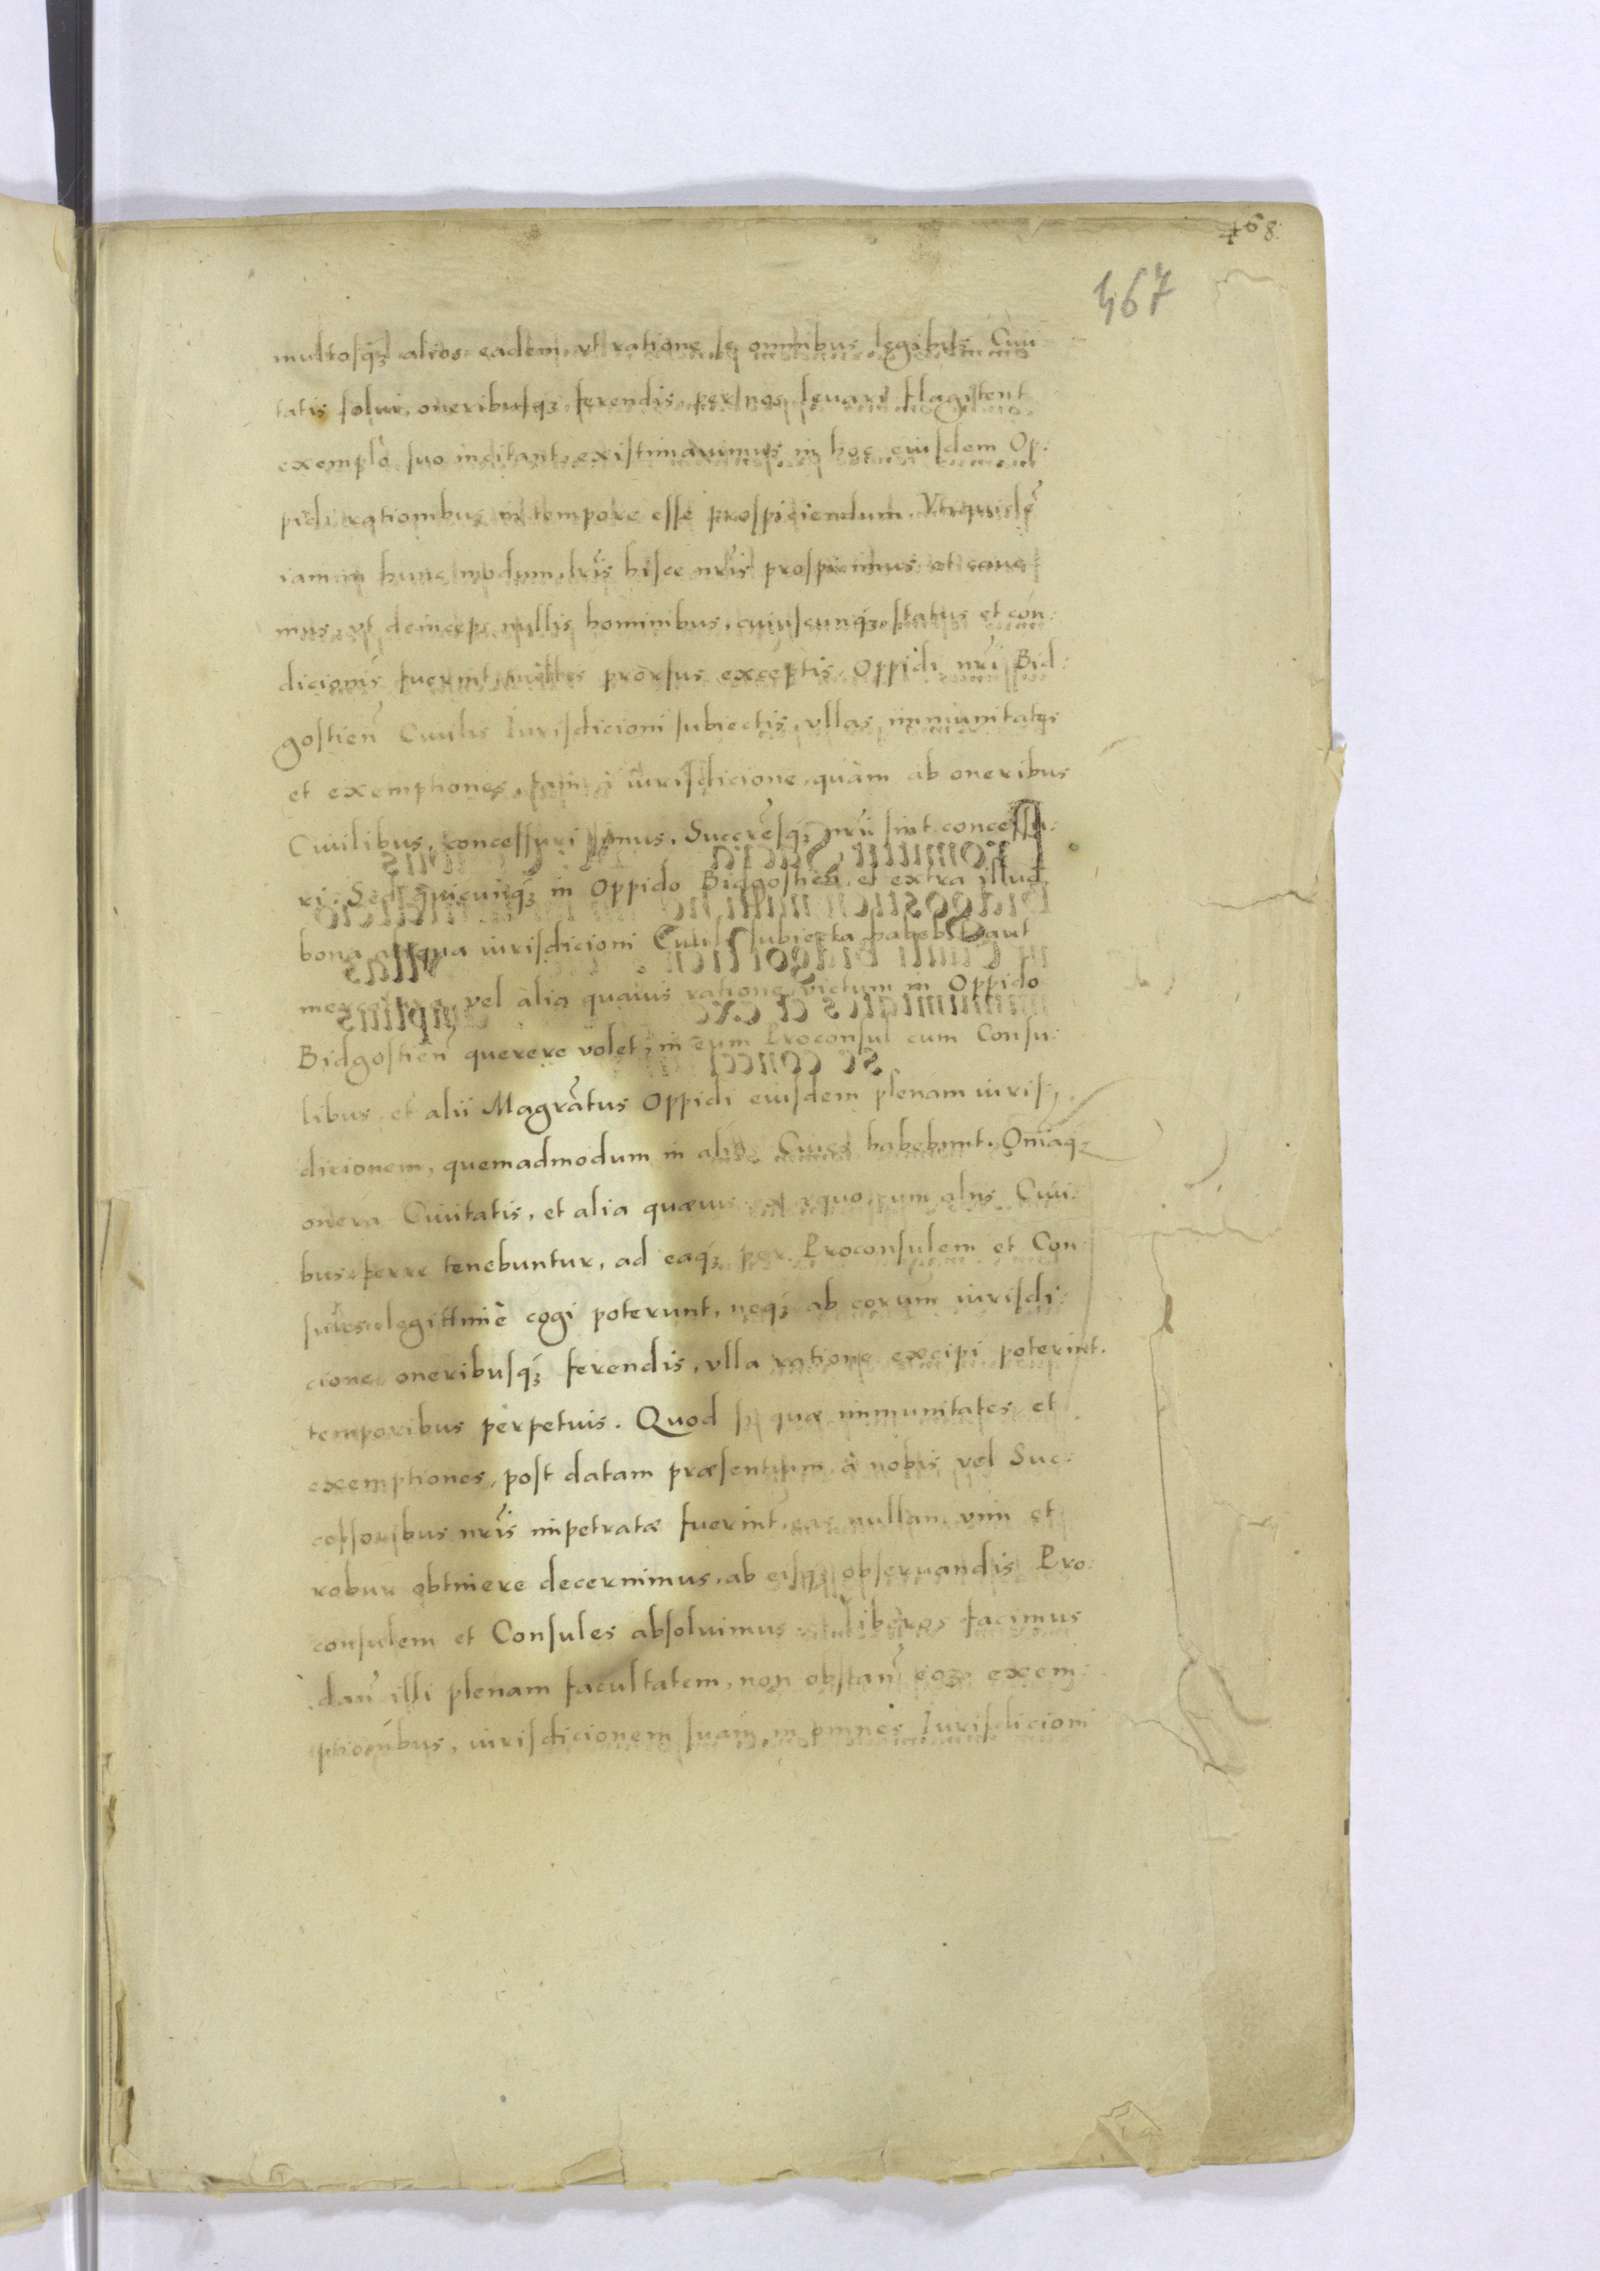 468.
467
multosq3 alios eadem, vt ratione se omnibus legibus Ciui
tatis solui, oneribusq3 ferendis, per nos leuari flagitent
exemplo suo incitant, existimauimus in hoc eiusdem Op:
pidi rationibus in tempore esse prospiciendum. Vti quidē
iam in hunc modum lr̃is hisce nr̃is prospicimus et caue
mus, vt deinceps nullis hominibus, cuiuscunq3 status et con:
dicionis fuerint, nullis prorsus exceptis, Oppidi nr̃i Bid:
gostien̄ Ciuilis Iurisdicioni subiectis, vllas immunitates
et exemptiones, tam à iurisdicione, quàm ab oneribus
Ciuilibus, concessuri simus, Succr̃esq3 nr̃i sint concessu:
ri. Sed quicunq3 in Oppido Bidgostien̄ et extra illud
bona aliqua iurisdicioni Ciuili subiecta habebit, aut
mercatura, vel alia quauis ratione, victum in Oppido
Bidgostien̄ querere volet, in eum Proconsul cum Consu:
libus, et alii Magrãtus Oppidi eiusdem plenam iuris,
dicionem, quemadmodum in alios Ciues habebunt. Om̄iaq3
onera Ciuitatis, et alia quæuis ex æquo cum aliis Ciui:
bus ferre tenebuntur, ad eaq3 per Proconsulem et Con
sules legittimè cogi poterunt, neq3 ab eorum iurisdi:
cione oneribusq3 ferendis, vlla ratione excipi poterint.
temporibus perpetuis. Quod si quæ immunitates et
exemptiones, post datam præsentium à nobis vel Suc:
cessoribus nr̃is impetratæ fuerint, eas nullam vim et
robur obtinere decernimus, ab eisq3 obseruandis Pro:
consulem et Consules absoluimus et liberos facimus
dan̄ illi plenam facultatem, non obstan̄ eoz exem:
ptionibus, iurisdicionem suam in omnes Iurisdicioni